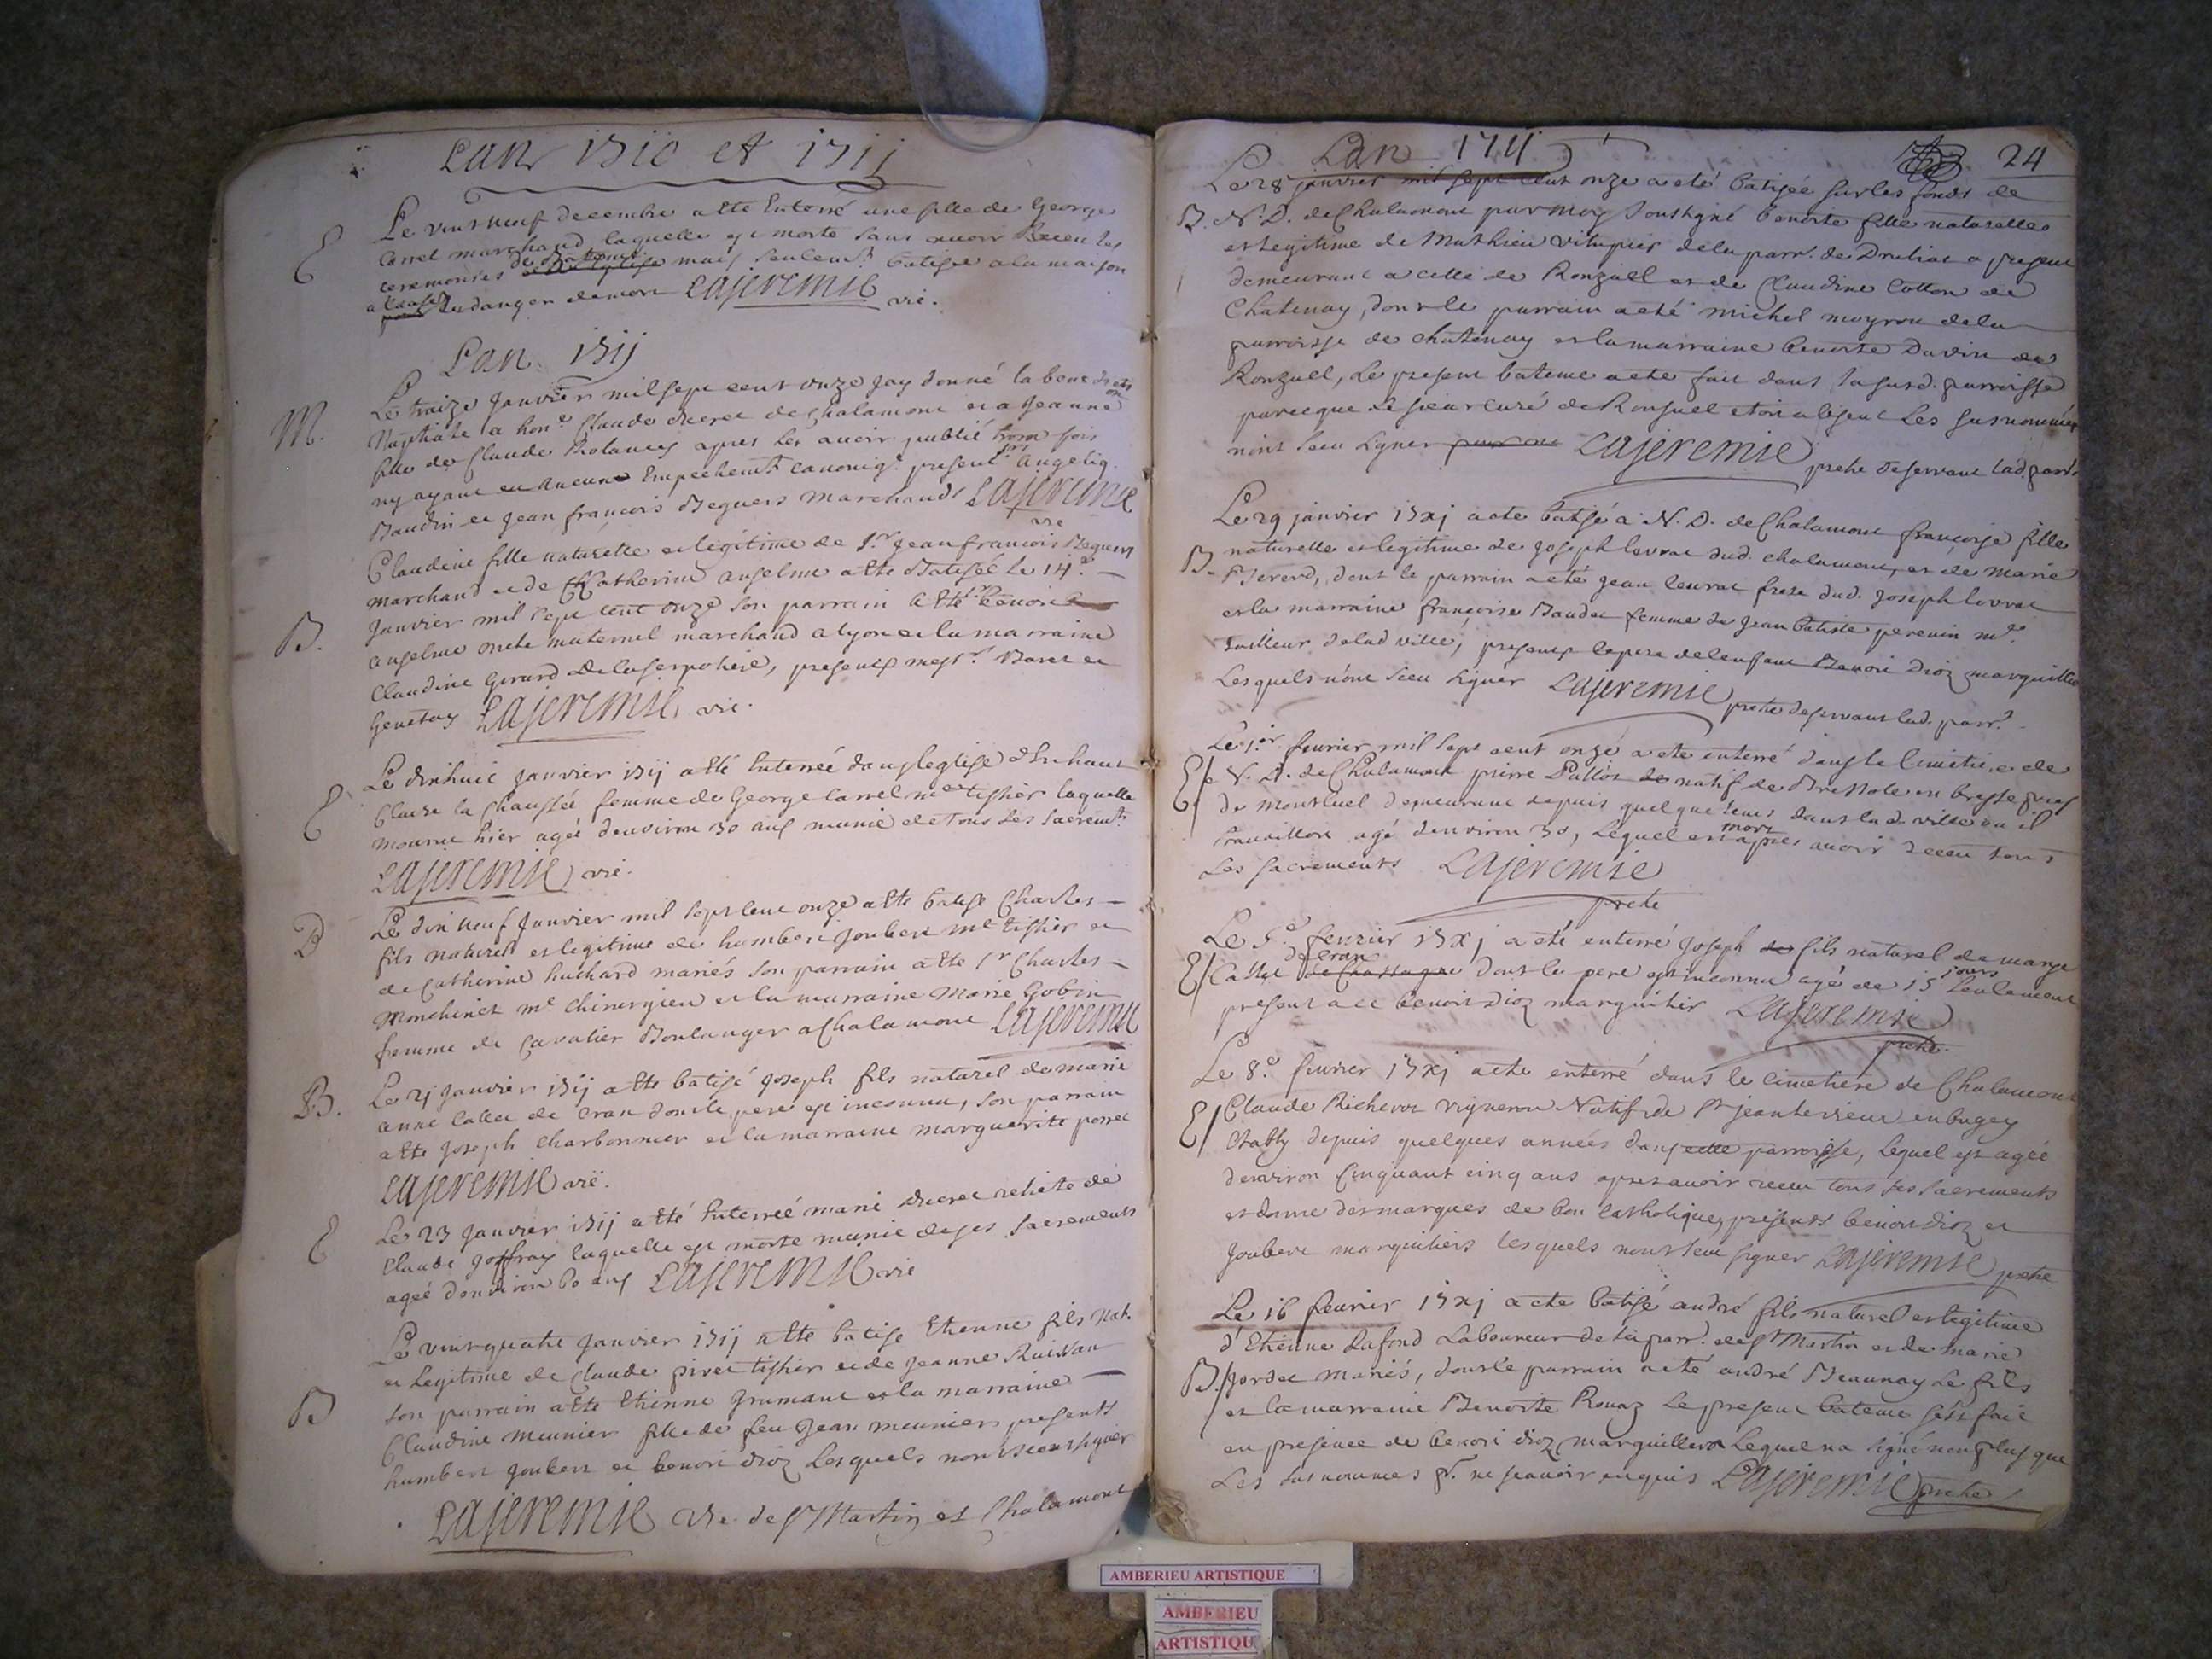 Lan 1710 et 1711
E Le vint neuf decembre a été Enterré une fille de George
Carrel marchand laquelle est morte sans avoir Receu les
ceremonies de Bateme mais seulemt batisée a la maison
a cause du danger de mort Lajeremie vic.
Lan 1711
Le traize Janvier mil sept cent onze jay donné la benediction
M. Nuptiale a hone Claude Decree de Chalamont et a Jeanne
fille de Claude Rolancy apres les avoir publié trois fois
ny ayant eu Aucune Empechemt canoniq. present Angeliq.
Baudin et Jean francois Beguers Marchands Lajeremie
vic
Claudine fille naturelle et legitime de Sr. Jean francois Beguers
marchand et de Catherine anselme a été Batisée le 14e
Janvier mil sept cent onze son parrain a été Sr. benoit
B. anselme oncle maternel marchand a lyon et la marraine
Claudine Gerard de la serpoliere, presents messr. Baret et
Genetay Lajeremie, vic.
Le dixhuit Janvier 1711 a été Enterrée dans leglise
E Claire la Chaussée femme de George Carrel me tissier laquelle
mourut hier agée denviron 30 ans munie de Tous les sacremts
Lajeremie vic.
B Le dix neuf Janvier mil sept cent onze a été batisé Charles
fils naturel et legitime de humbert Joubert me tissier et
de Catherine huchard mariés son parrain a été Sr Charles
Monchinet me chirurgien et la marraine Marie Gobin
femme de Cavalier Boulanger a Chalamont Lajeremie
B. Le 21 Janvier 1711 a été batisé Joseph fils naturel de marie
anne Callet de Cran dont le pere est inconnu, son parrain
a été Joseph Charbonnier et la marraine marguerite perret
Lajeremie vic.
E Le 23 Janvier 1711 a été Enterrée marie Decree relicte de
Claude Joffray laquelle est morte munie de ses sacrements
agée denviron 60 ans Lajeremie vic
Le vint quatre Janvier 1711 a été batisé Etienne fils nat.
et Legitime de Claude pivet tissier et de Jeanne Ruivan
B son parrain a été Etienne Grumaut et la marraine
Claudine Meunier fille de feu Jean meunier presents
humbert Joubert et benoit dioz Lesquels nont sceu signer
Lajeremie vic de St Martin et Chalamont
Lan 1711 24
Le 28 janvier mil sept cent onze a eté batisée sur les fonds de
B. N. D. de Chalamont par moy soussigné benoite fille naturelle
et legitime de Mathieu vitupier de la parr. de Druliat a present
demeurant a celle de Ronzuel et de Claudine Cotton de
Chatenay, dont le parrain a eté michel moyrou de la
parroisse de chatenay et la marraine benoite Davin de
Ronzuel, Le present bateme a eté fait dans la susd. parroisse
parceque le sieur curé de Ronsuel etoit absent Les susnommés
n'ont sceu signer Lajeremie pretre deservant lad. parr.
Le 29 janvier 17xj a eté batisé a N. D. de Chalamont francoise fille
B. naturelle et legitime de Joseph levrat dud. chalamont, et de marie
Bererd, dont le parrain a eté jean levrat frere dud. joseph levrat
et la marraine françoise Baudet femme de Jean batiste perenin me
tailleur de lad ville, presents le pere de lenfant Benoit Dioz marguillier
Lesquels n'ont sceu signer Lajeremie pretre deservant lad. parr.
Le 1er. fevrier mil sept cent onze a eté enterré dans le Cimetiere de
E/ N. D. de Chalamont pierre Pulliat de natif de Bressole en bresse pres
de Montluel demeurant depuis quelque tems dans lad. ville ou il
travailloit agé denviron 30, Lequel est mort apres avoir receu tous
Les sacrements Lajeremie
pretre
Le 5e fevrier 17xj a eté enterré Joseph de fils naturel de marye
E/ Callet de Cran de Chassagne dont le pere est inconnu agé de 15 jours seulement
present a ce benoit Dioz marguillier Lajeremie
pretre.
Le 8e. fevrier 17xj a eté enterré dans le cimetiere de Chalamont
E/ Claude Richerot vigneron Natif de St jean le vieux en bugey
Etably depuis quelques années dans cette parroisse, lequel est agée
denviron Cinquant cinq ans apres avoir receu tous ses sacrements
et donné des marques de bon Catholique, presents benoit dioz et
Joubert marguilliers lesquels n'ont sceu signer Lajeremie pretre
Le 16 fevrier 17xj a eté batisé andré fils naturel et legitime
d'Etienne Lafond Laboureur de la parr. de St Martin et de marie
B./ Jordet mariés, dont le parrain a eté andré Beaunay Le fils
et la marraine Benoite Rouaz Le present bateme sest fait
en presence de benoit dioz marguillier Lequel na signé non plus que
Les sus nommés pr. ne scavoir enquis Lajeremie pretre
AMBERIEU ARTISTIQUE
AMBERIEU
ARTISTIQU